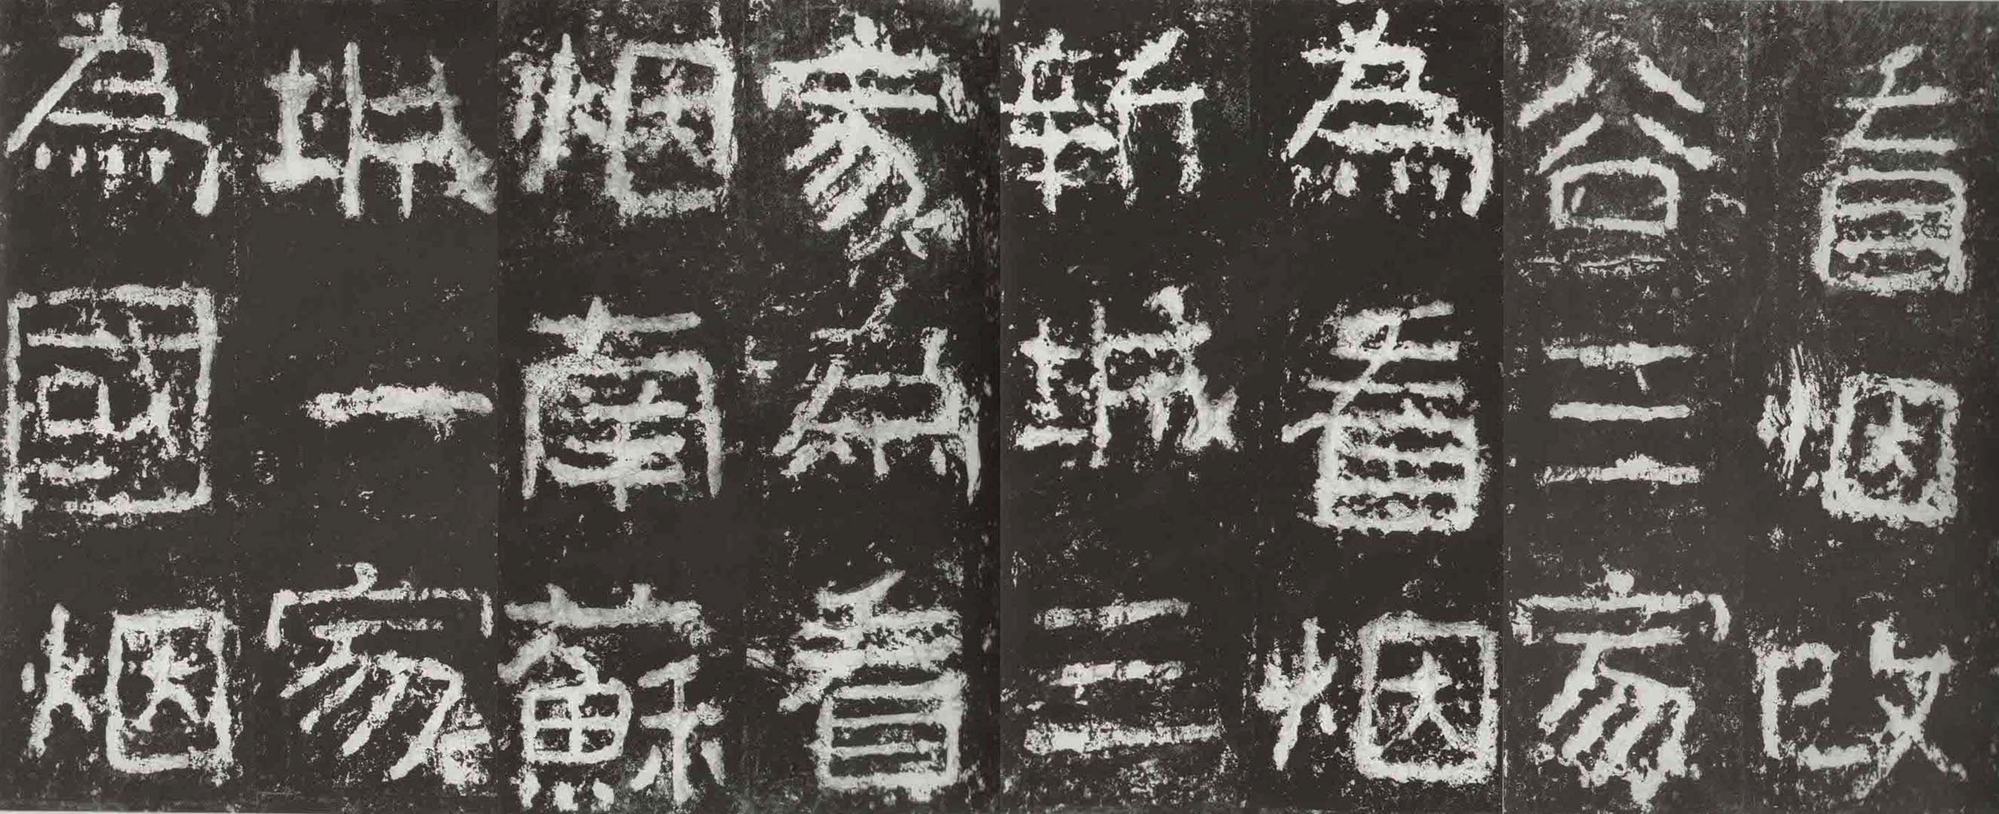 看烟改
谷三家
為看烟
新城三
家為看
烟南蘇
城一家
為國烟